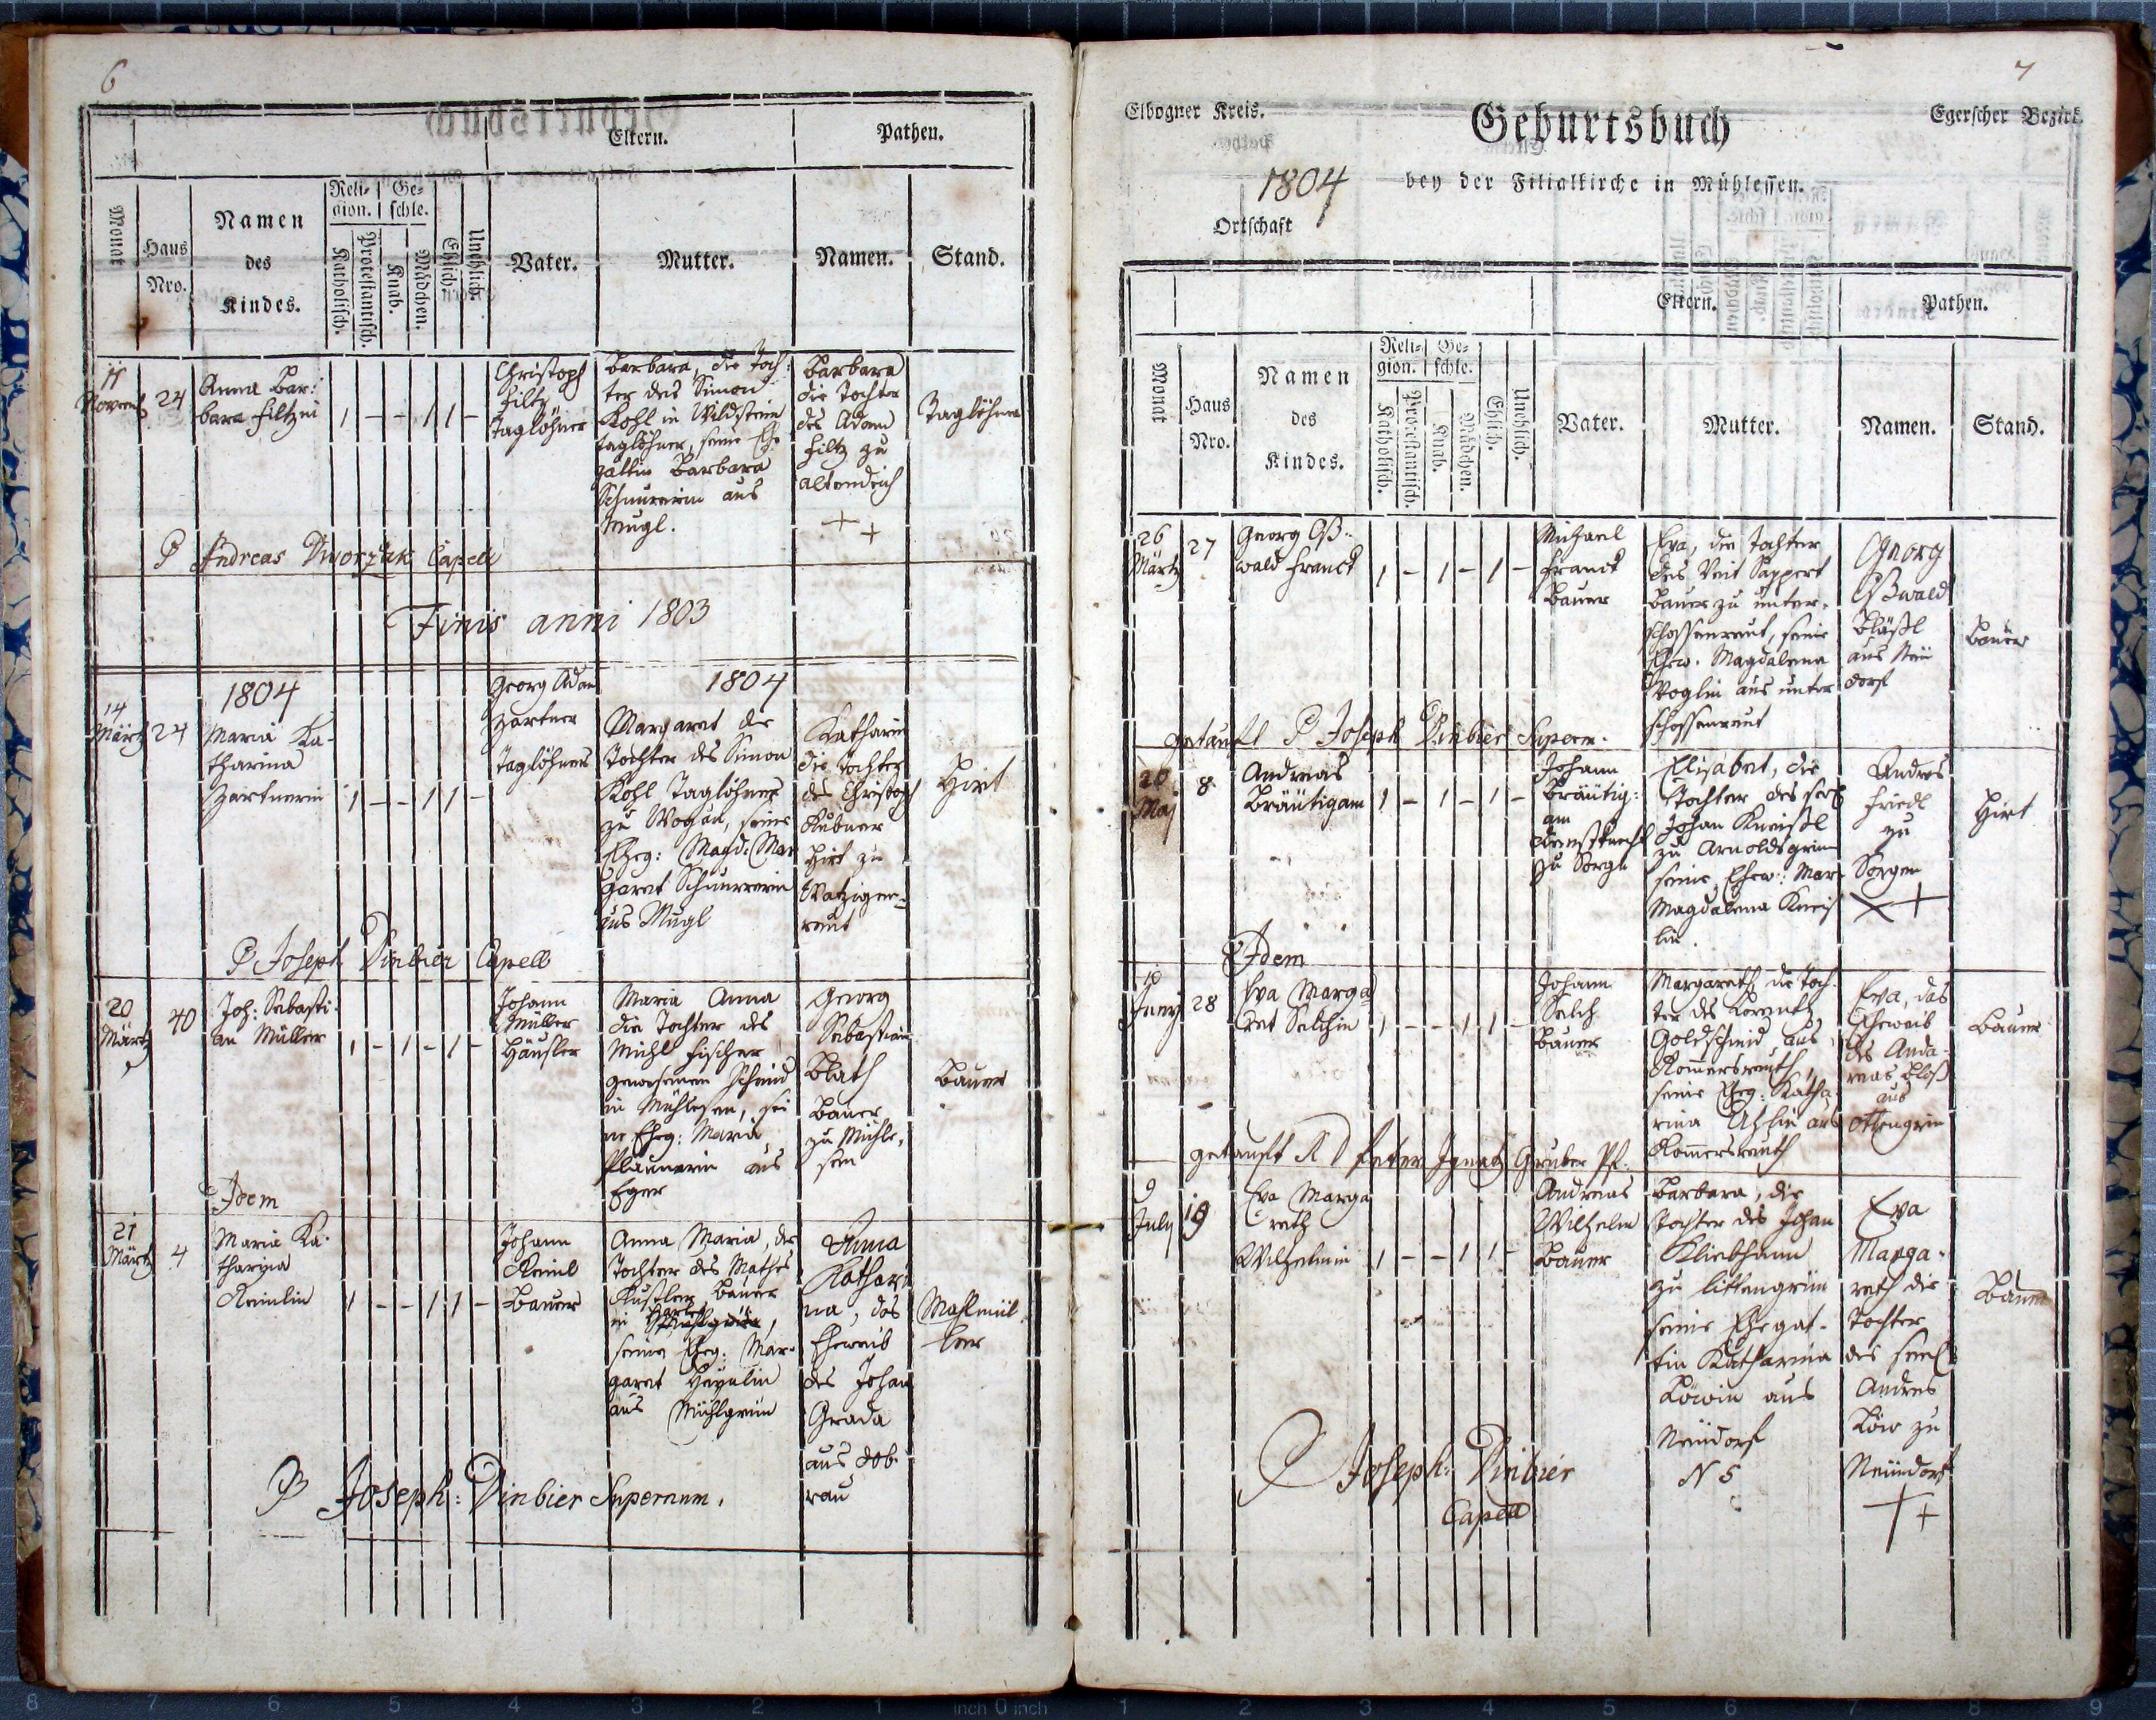 6
Eltern.
Pathen.
Monat
Haus
Nro.
Namen
des
Kindes.
Reli-
gion.
Ge-
schle.
Katholisch.
Protestantisch.
Knab.
Mädchen.
Ehlich.
Unehlich.
Vater.
Mutter.
Namen.
Stand.
11
Novemb
24
Anna Bar:
bara Filtzin
1 - - 1 1 -
Christoph
Filtz
Taglöhner
Barbara, die Toch:
ter des Simon
Kohl in Wildstein
Taglöhner, seine Ehe
gattin Barbara
Schnurrerin aus
Mugl.
Barbara
die Tochter
des Adam
Filtz zu
Altenteich
+ +
Taglöhner
P Andreas Dworzak Capell
Finis anni 1803
1804
1804
14
Märtz
24
Maria Ka-
tharina
Zartnerin
1 - - 1 1 -
Georg Adam
Zartner
Taglöhner
Margaret die
Tochter des Simon
Kohl Taglöhner
zu Wogau, seine
Eheg: Magd: Mar
garet Schnurrerin
aus Mugl
Katharin
die Tochter
des Christoph
Hubner
Hirt zu
Watzigen=
reut
Hirt
P Joseph Dinbier Capell
20
Märtz
40
Joh: Sebasti-
an Müller
1 - 1 - 1 -
Johann
Müller
Häusler
Maria Anna
die Tochter des
Michl Fischer
gewesenen Schmid
in Mühlesen, sei
ne Eheg: Maria
Plaunerin aus
Eger
Georg
Sebastian
Blath
Bauer
zu Mühle-
sen
Bauer
Idem
21
Märtz
4
Maria Ka-
tharina
Reinlin
1 - - 1 1 -
Johann
Reinl
Bauer
Anna Maria, die
Tochter des Mathes
Bauer
in
seine Eheg: Mar-
garet
aus Mühlgrün
Anna
Kathari
na, das
Eheweib
des Johan
Grada
aus Dob-
rau
Mahlmül
ler
P Joseph: Dinbier Supernum.
7
Elbogner Kreis.
Geburtsbuch
Egerscher Bezirk.
1804
bey der Filialkirche in Mühlessen.
Ortschaft
Eltern.
Pathen.
Monat
Haus
Nro.
Namen
des
Kindes.
Reli-
gion.
Ge-
schle.
Katholisch.
Protestantisch.
Knab.
Mädchen.
Ehlich.
Unehlich.
Vater.
Mutter.
Namen.
Stand.
26
Märtz
27
Georg Oß-
wald Franck
1 - 1 - 1 -
Michael
Franck
Bauer
Eva, die Tochter
des Veit Sappert
Bauer zu Unter-
schossenreut, seine
Ehew. Magdalena
Voglin aus Unter
schossenreut
Georg
Oßwald
Bläßl
aus Neu
dorf
Bauer
getauft P Joseph Dinbier Supern.
20
Maj
8
Andreas
Bräutigam
1 - 1 - 1 -
Johann
Bräutig:
am
Dienstknecht
zu Sorgn
Elisabet, die
Tochter des seel
Johan Kneißl
zu Arnoldsgrün
seine Ehew: Mar
Magdalena Kneis
lin.
Andres
Friedl
zu
Sorgen
X +
Hirt
Idem
10
Juny
28
Eva Marga
ret Salchin
1 - - 1 1 -
Johann
Salch
Bauer
Margareth die Toch-
ter des Lorentz
Goldschmid aus
Rommersreuth,
seine Eheg: Katha-
rina Uhlin aus
Rommersreuth
Eva, das
Eheweib
des Andr
eas Bloß
aus
Ottengrün
Bauer
getauft R D Peter Ignatz Gruber Pf:
9
July
19
Eva Marga
reth
Wilhelmin
1 - - 1 1 -
Andreas
Wilhelm
Bauer
Barbara, die
Tochter des Johan
Kliebhann
zu Littengrün
seine Ehegat-
tin Katharina
Löwin aus
Neudorf
N 5
Eva
Marga-
reth die
Tochter
des seel
Andres
Löw zu
Neudorf
+ +
Bauer
P Joseph: Dinbier
Capell